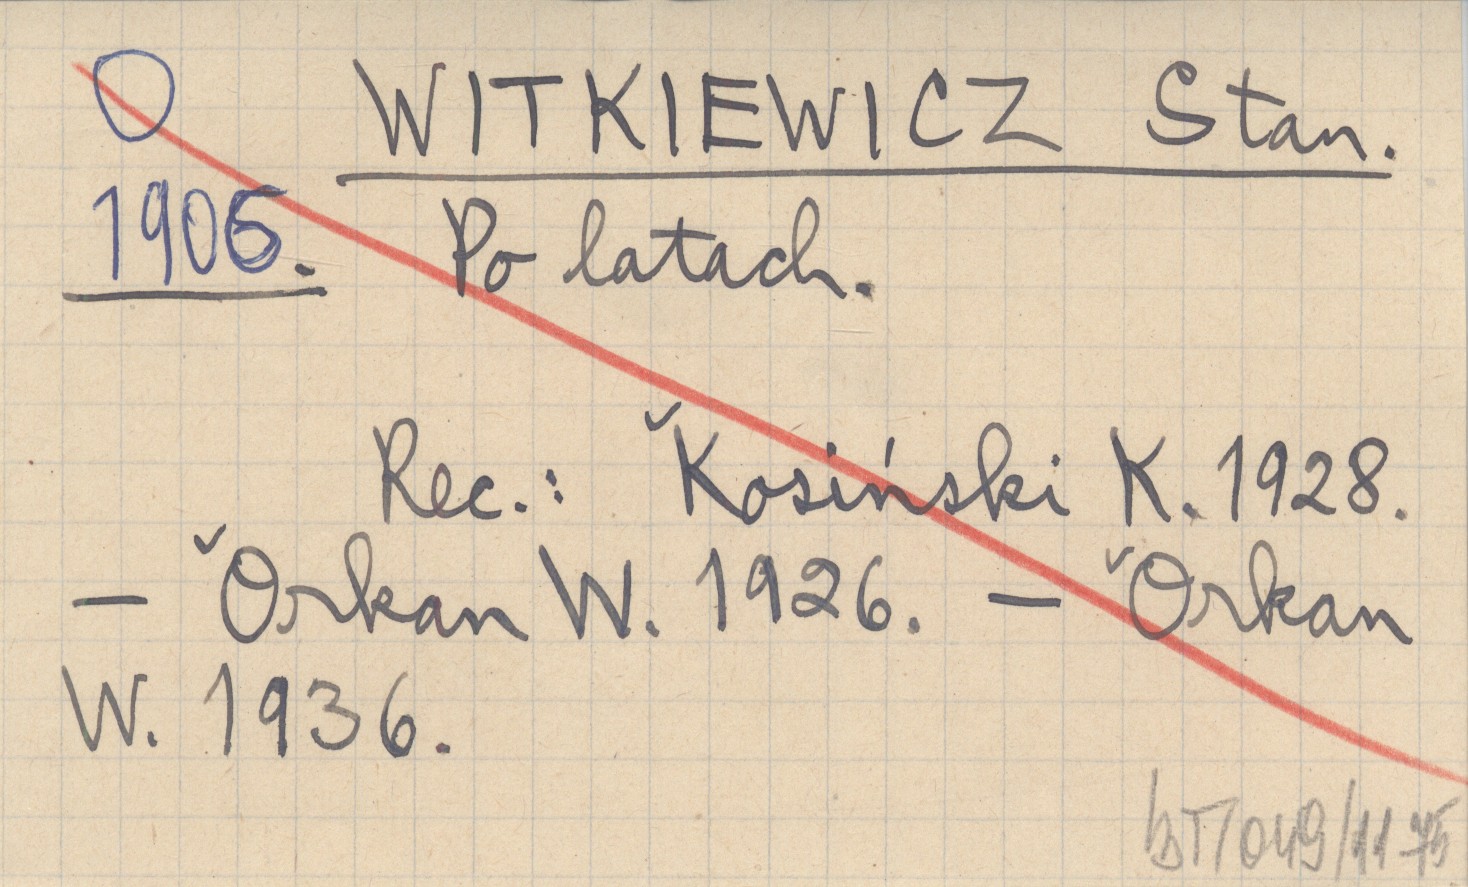 WITKIEWICZ Stan.
1905. Po latach.
Rec.: ˇKosiński K. 1928.
— ˇOrkan W. 1926. — ˇOrkan
W. 1936.
BT/049/11 75